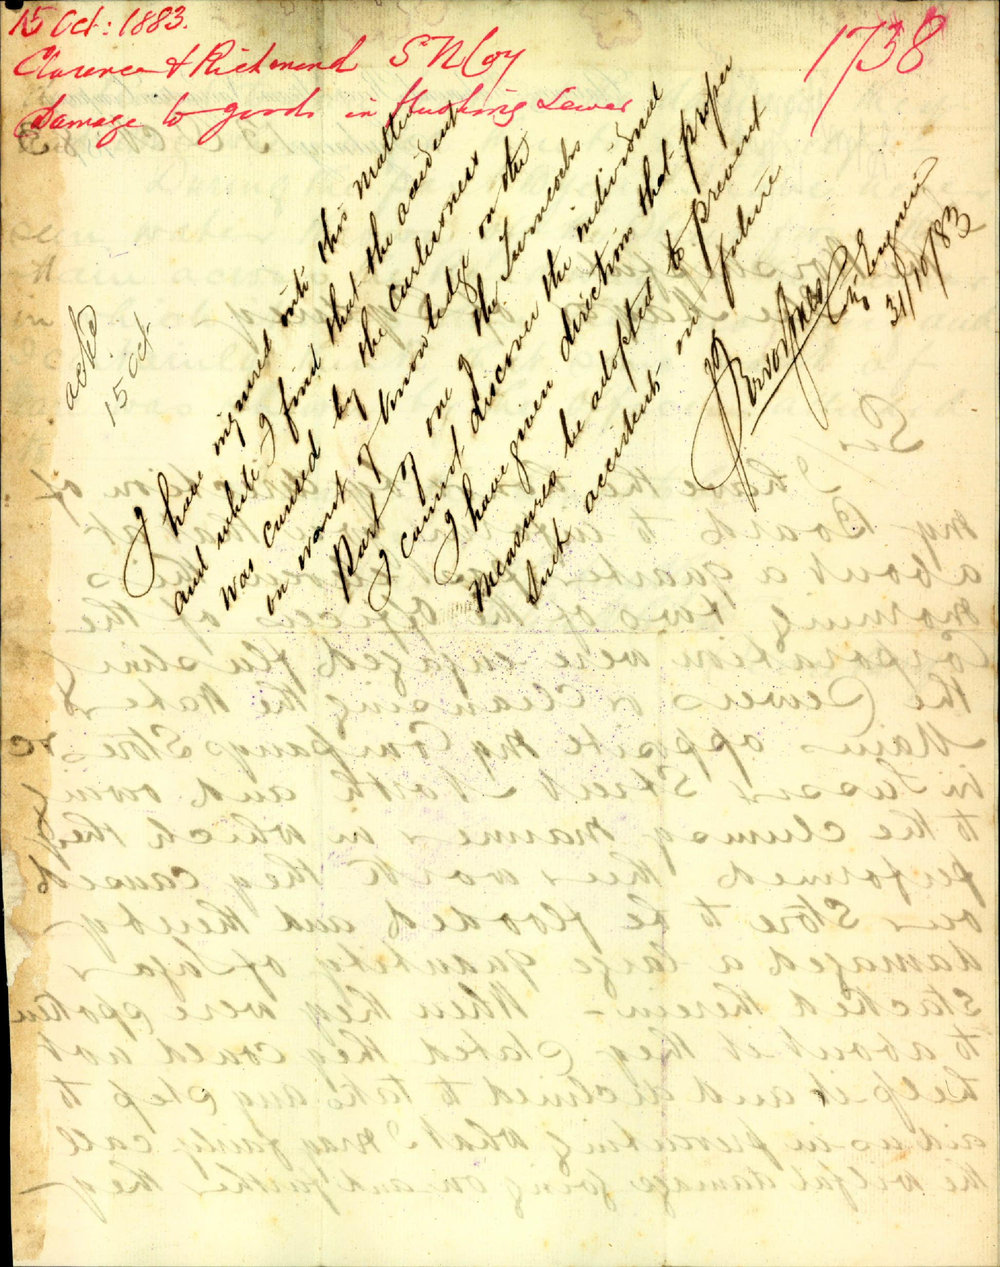 15 Oct: 1883.
1738
Clarence & Richmond S N Coy
Damage to goods in flushing Sewer
ackd
15 Oct
I have inquired into this matter
and while I find that the accident
was caused by the carlessness
or want of knowledge on the
Part of one of the Turncocks
I cannot discover the individual
I have given direction that proper
Measures be adopted to prevent
Such accidents in future
Engineer
31/10/83
Sir
I have the honor by direction of
my Board to inform you that
about a quarter past eleven this
morning two of the officers of the
Corporation were engaged flushing
the Sewers or Cleansing the Water
Mains opposite my Company's Store
in Sussex Street North and owing
to the clumsy manner in which they
performed their work they caused
our Store to be flooded and thereby
damaged a large quantity of
Stacked therein - When they were spoken
to about it they stated they could not
help it and declined to take any step to
aid us in preventing what I may fairly call
the wilful damage going on and further they